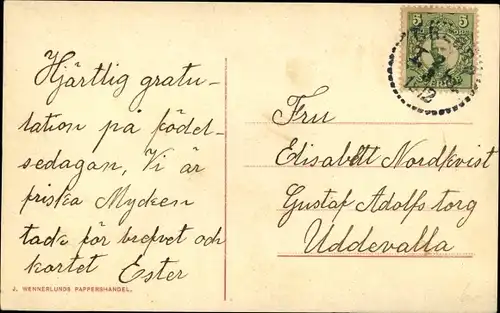 Hjärtlig gratu-
lation på födel-
sedagan, Vi är
friska Mycken
tack för brefvet och
kortet Ester
J. WENNERLUNDS PAPPERSHANDEL.
5 5
12
Fru
Elisabett Nordkvist
Gustaf Adolfs torg
Uddevalla